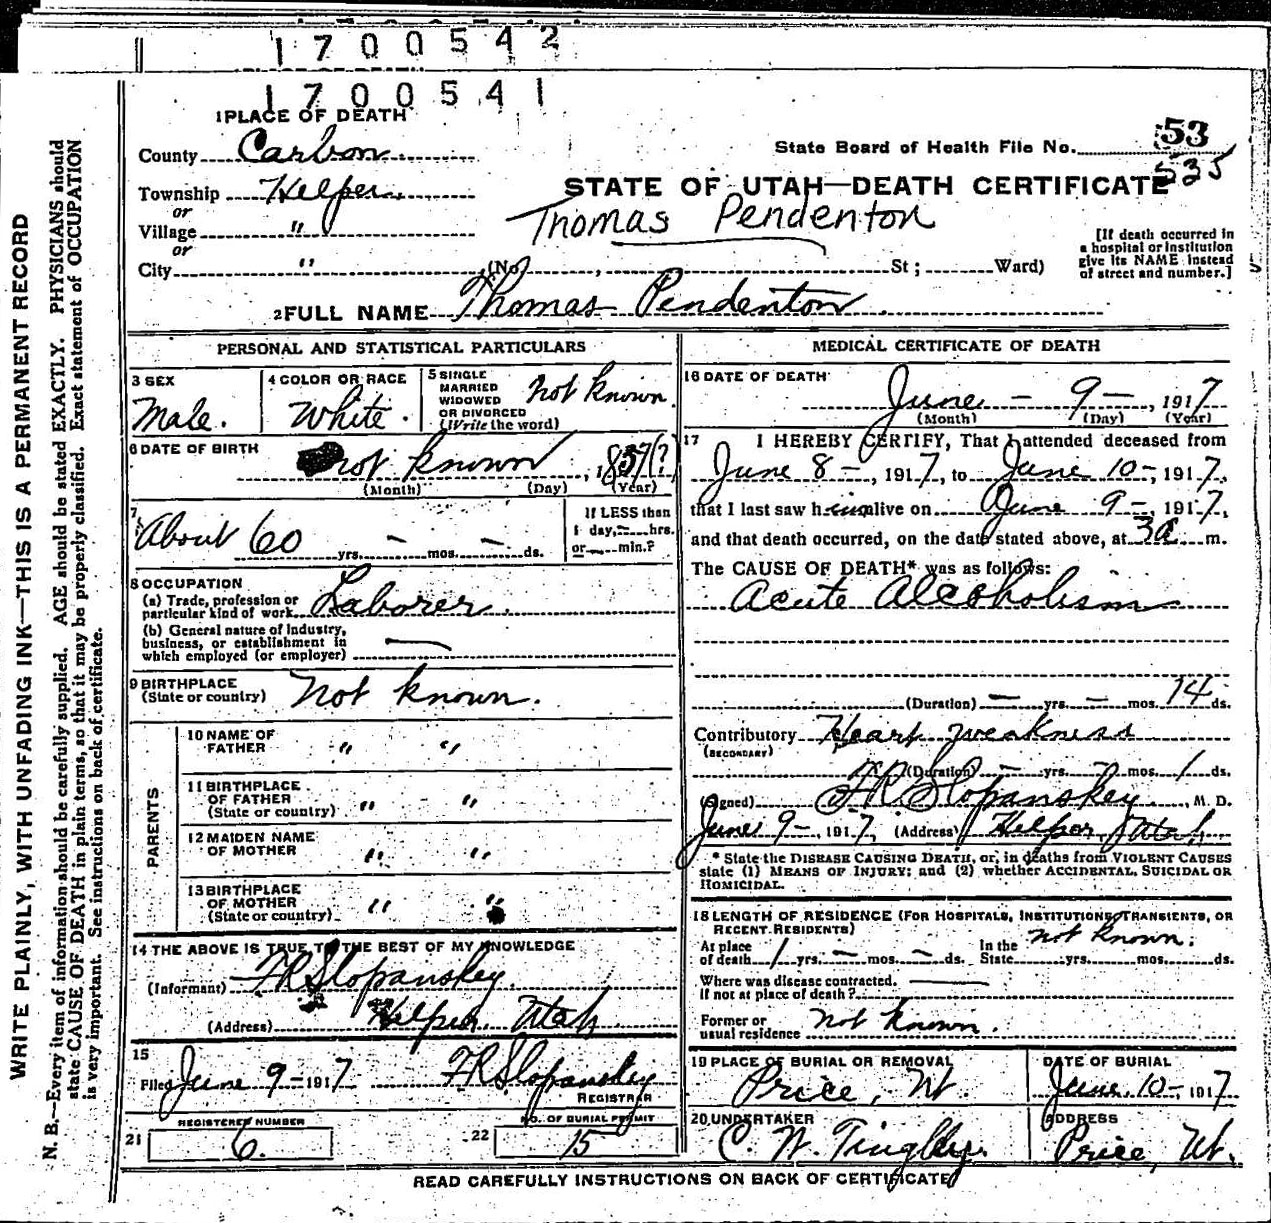 1700542
1700541
1 PLACE OF DEATH
County Carbon
State Board of Health File No. 53
535
Township Helper
STATE OF UTAH—DEATH CERTIFICATE
or
Thomas Pendenton
Village "
or
City " (No. , St; Ward)
[If death occurred in
a hospital or institution
give its NAME instead
of street and number.]
2 FULL NAME Thomas Pendenton
PERSONAL AND STATISTICAL PARTICULARS
3 SEX
Male.
4 COLOR OR RACE
White.
5 SINGLE
MARRIED
WIDOWED
OR DIVORCED
(Write the word)
Not known.
6 DATE OF BIRTH
not known, 1857(?)
(Month) (Day) (Year)
7
About 60 yrs. — mos. — ds.
If LESS than
1 day, — hrs.
or — min.?
8 OCCUPATION
(a) Trade, profession or
particular kind of work Laborer.
(b) General nature of industry,
business, or establishment in
which employed (or employer) —
9 BIRTHPLACE
(State or country) Not known.
PARENTS
10 NAME OF
FATHER " "
11 BIRTHPLACE
OF FATHER
(State or country) " "
12 MAIDEN NAME
OF MOTHER " "
13 BIRTHPLACE
OF MOTHER
(State or country) " "
14 THE ABOVE IS TRUE TO THE BEST OF MY KNOWLEDGE
(Informant) F R Slopanskey.
(Address) Helper, Utah
15
Filed June 9 — 1917 F R Slopanskey
REGISTRAR
REGISTERED NUMBER
21 6.
NO. OF BURIAL PERMIT
22 15
MEDICAL CERTIFICATE OF DEATH
16 DATE OF DEATH
June — 9 —, 1917
(Month) (Day) (Year)
17 I HEREBY CERTIFY, That I attended deceased from
June 8 —, 1917, to June 10 —, 1917,
that I last saw him alive on June 9 —, 1917,
and that death occurred, on the date stated above, at 3a m.
The CAUSE OF DEATH* was as follows:
Acute Alcoholism
(Duration) — yrs. — mos. 14 ds.
Contributory Heart weakness
(SECONDARY)
(Duration) — yrs. — mos. 1 ds.
(Signed) F R Slopanskey, M. D.
June 9 —, 1917, (Address) Helper, Utah,
* State the DISEASE CAUSING DEATH, or, in deaths from VIOLENT CAUSES
state (1) MEANS OF INJURY; and (2) whether ACCIDENTAL, SUICIDAL OR
HOMICIDAL.
18 LENGTH OF RESIDENCE (FOR HOSPITALS, INSTITUTIONS, TRANSIENTS, OR
RECENT RESIDENTS)
At place
of death 1 yrs. — mos. — ds.
In the
State yrs. mos. ds.
not known.
Where was disease contracted.
If not at place of death? —
Former or
usual residence Not known.
19 PLACE OF BURIAL OR REMOVAL
Price, Ut.
DATE OF BURIAL
June 10 —, 1917
20 UNDERTAKER
C. W. Tingley.
ADDRESS
Price, Ut.
READ CAREFULLY INSTRUCTIONS ON BACK OF CERTIFICATE
WRITE PLAINLY, WITH UNFADING INK—THIS IS A PERMANENT RECORD
N. B.—Every item of information should be carefully supplied. AGE should be stated EXACTLY. PHYSICIANS should
state CAUSE OF DEATH in plain terms, so that it may be properly classified. Exact statement of OCCUPATION
is very important. See instructions on back of certificate.